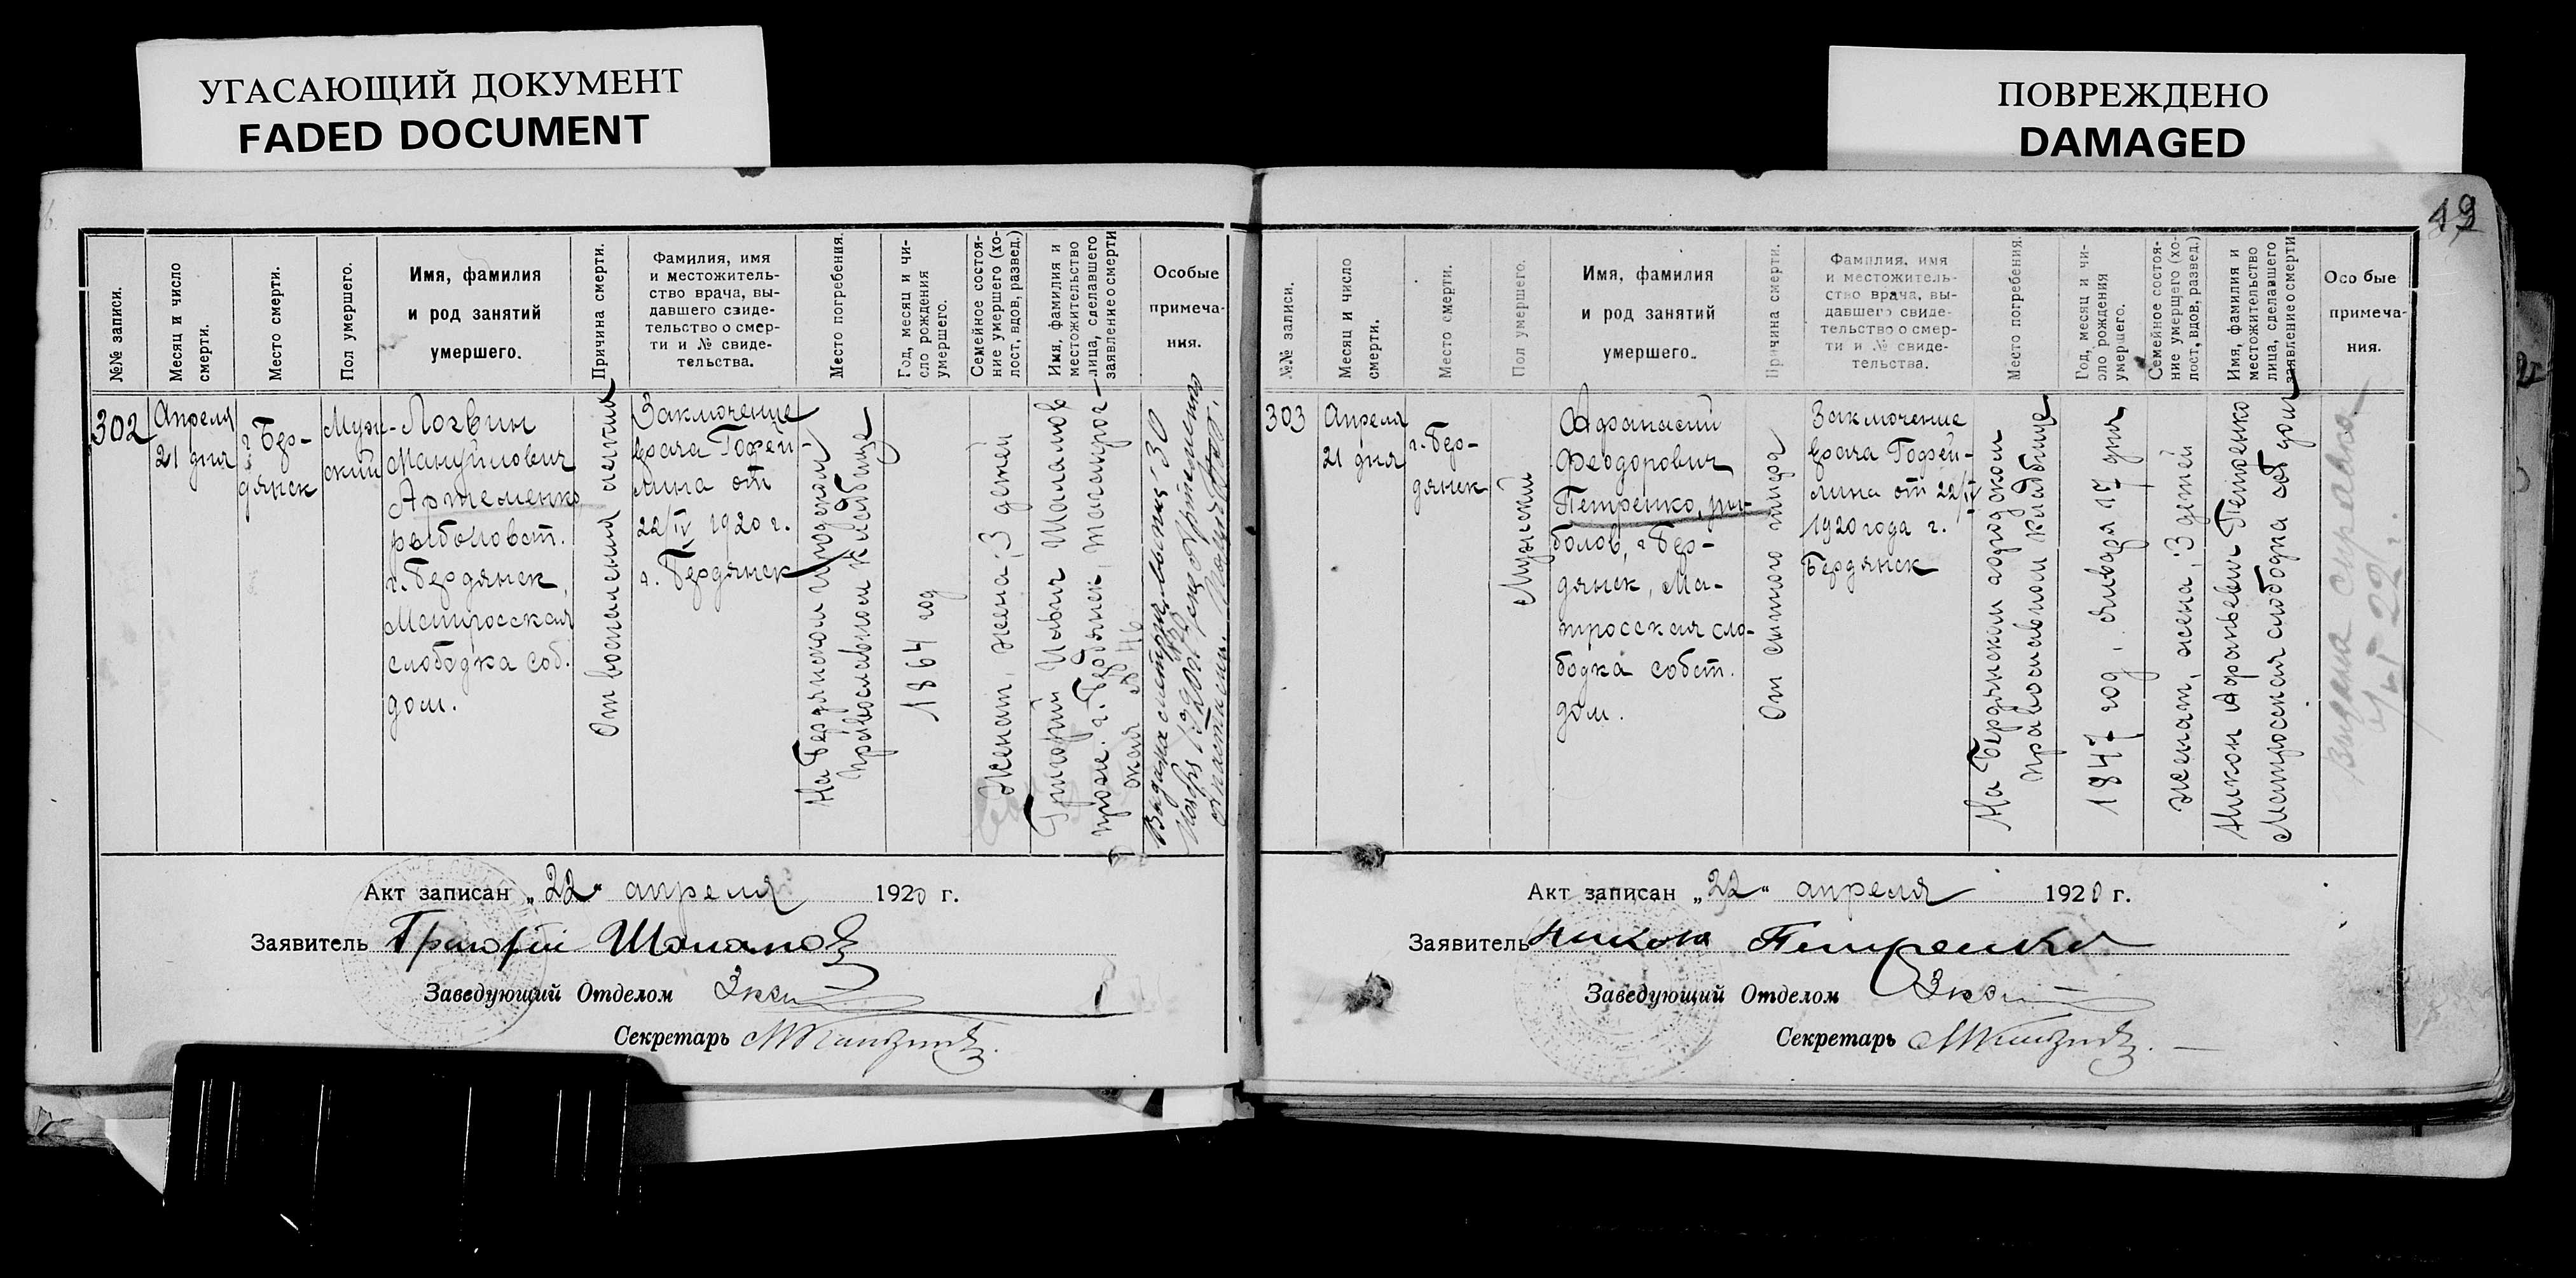 УГАСАЮЩИЙ ДОКУМЕНТ
FADED DOCUMENT
ПОВРЕЖДЕНО
DAMAGED
№№ записи.
Месяц и число
смерти.
Место смерти.
Пол умершего.
Имя, фамилия
и род занятий
умершего.
Причина смерти.
Фамилия, имя
и местожитель-
ство врача, вы-
давшего свиде-
тельство о смер-
ти и № свиде-
тельства.
Место погребения.
Год, месяц и чи-
сло рождения
умершего.
Семейное состоя-
ние умершего (хо-
лост, вдов, развед.)
Имя, фамилия и
местожительство
лица, сделавшего
заявление о смерти
Особые
примеча-
ния.
302
Апреля
21 дня
г. Бер-
дянск
Муж-
ский
Логвин
Мануйлович
Артеменко
рыболовст.
г. Бердянск,
Матросская
слободка соб.
дом.
От воспаления легких
Заключение
врача Гофей-
лина от
22/IV 1920 г.
г. Бердянск
На Бердянском городском
православном кладбище
1864 год
Женат, жена, 3 детей
Григорий Ильич Шаламов
прож. г. Бердянск, Таганрог-
ская № 46
Ноября 1920 г.
Акт записан „22“ апреля 1920 г.
Заявитель Григорій Шаламов
Заведующий Отделом
Секретарь
19
№№ записи.
Месяц и число
смерти.
Место смерти.
Пол умершего.
Имя, фамилия
и род занятий
умершего.
Причина смерти.
Фамилия, имя
и местожитель-
ство врача, вы-
давшего свиде-
тельство о смер-
ти и № свиде-
тельства.
Место погребения.
Год, месяц и чи-
сло рождения
умершего.
Семейное состоя-
ние умершего (хо-
лост, вдов, развед.)
Имя, фамилия и
местожительство
лица, сделавшего
заявление о смерти
Особые
примеча-
ния.
303
Апреля
21 дня
г. Бер-
дянск
Мужской
Афанасий
Феодорович
Петренко, ры-
болов, г. Бер-
дянск, Ма-
тросская сло-
бодка собст.
дом.
От сыпного тифа
Заключение
врача Гофей-
лина от 22/IV
1920 года г.
Бердянск
На Бердянском городском
православном кладбище
1847 год, января 17 дня
женат, жена, 3 детей
Никон Афанасьевич Петренко
Матросская слободка соб дом
Выдана справка
Акт записан „22“ апреля 1920 г.
Заявитель Никон Петренко
Заведующий Отделом
Секретарь